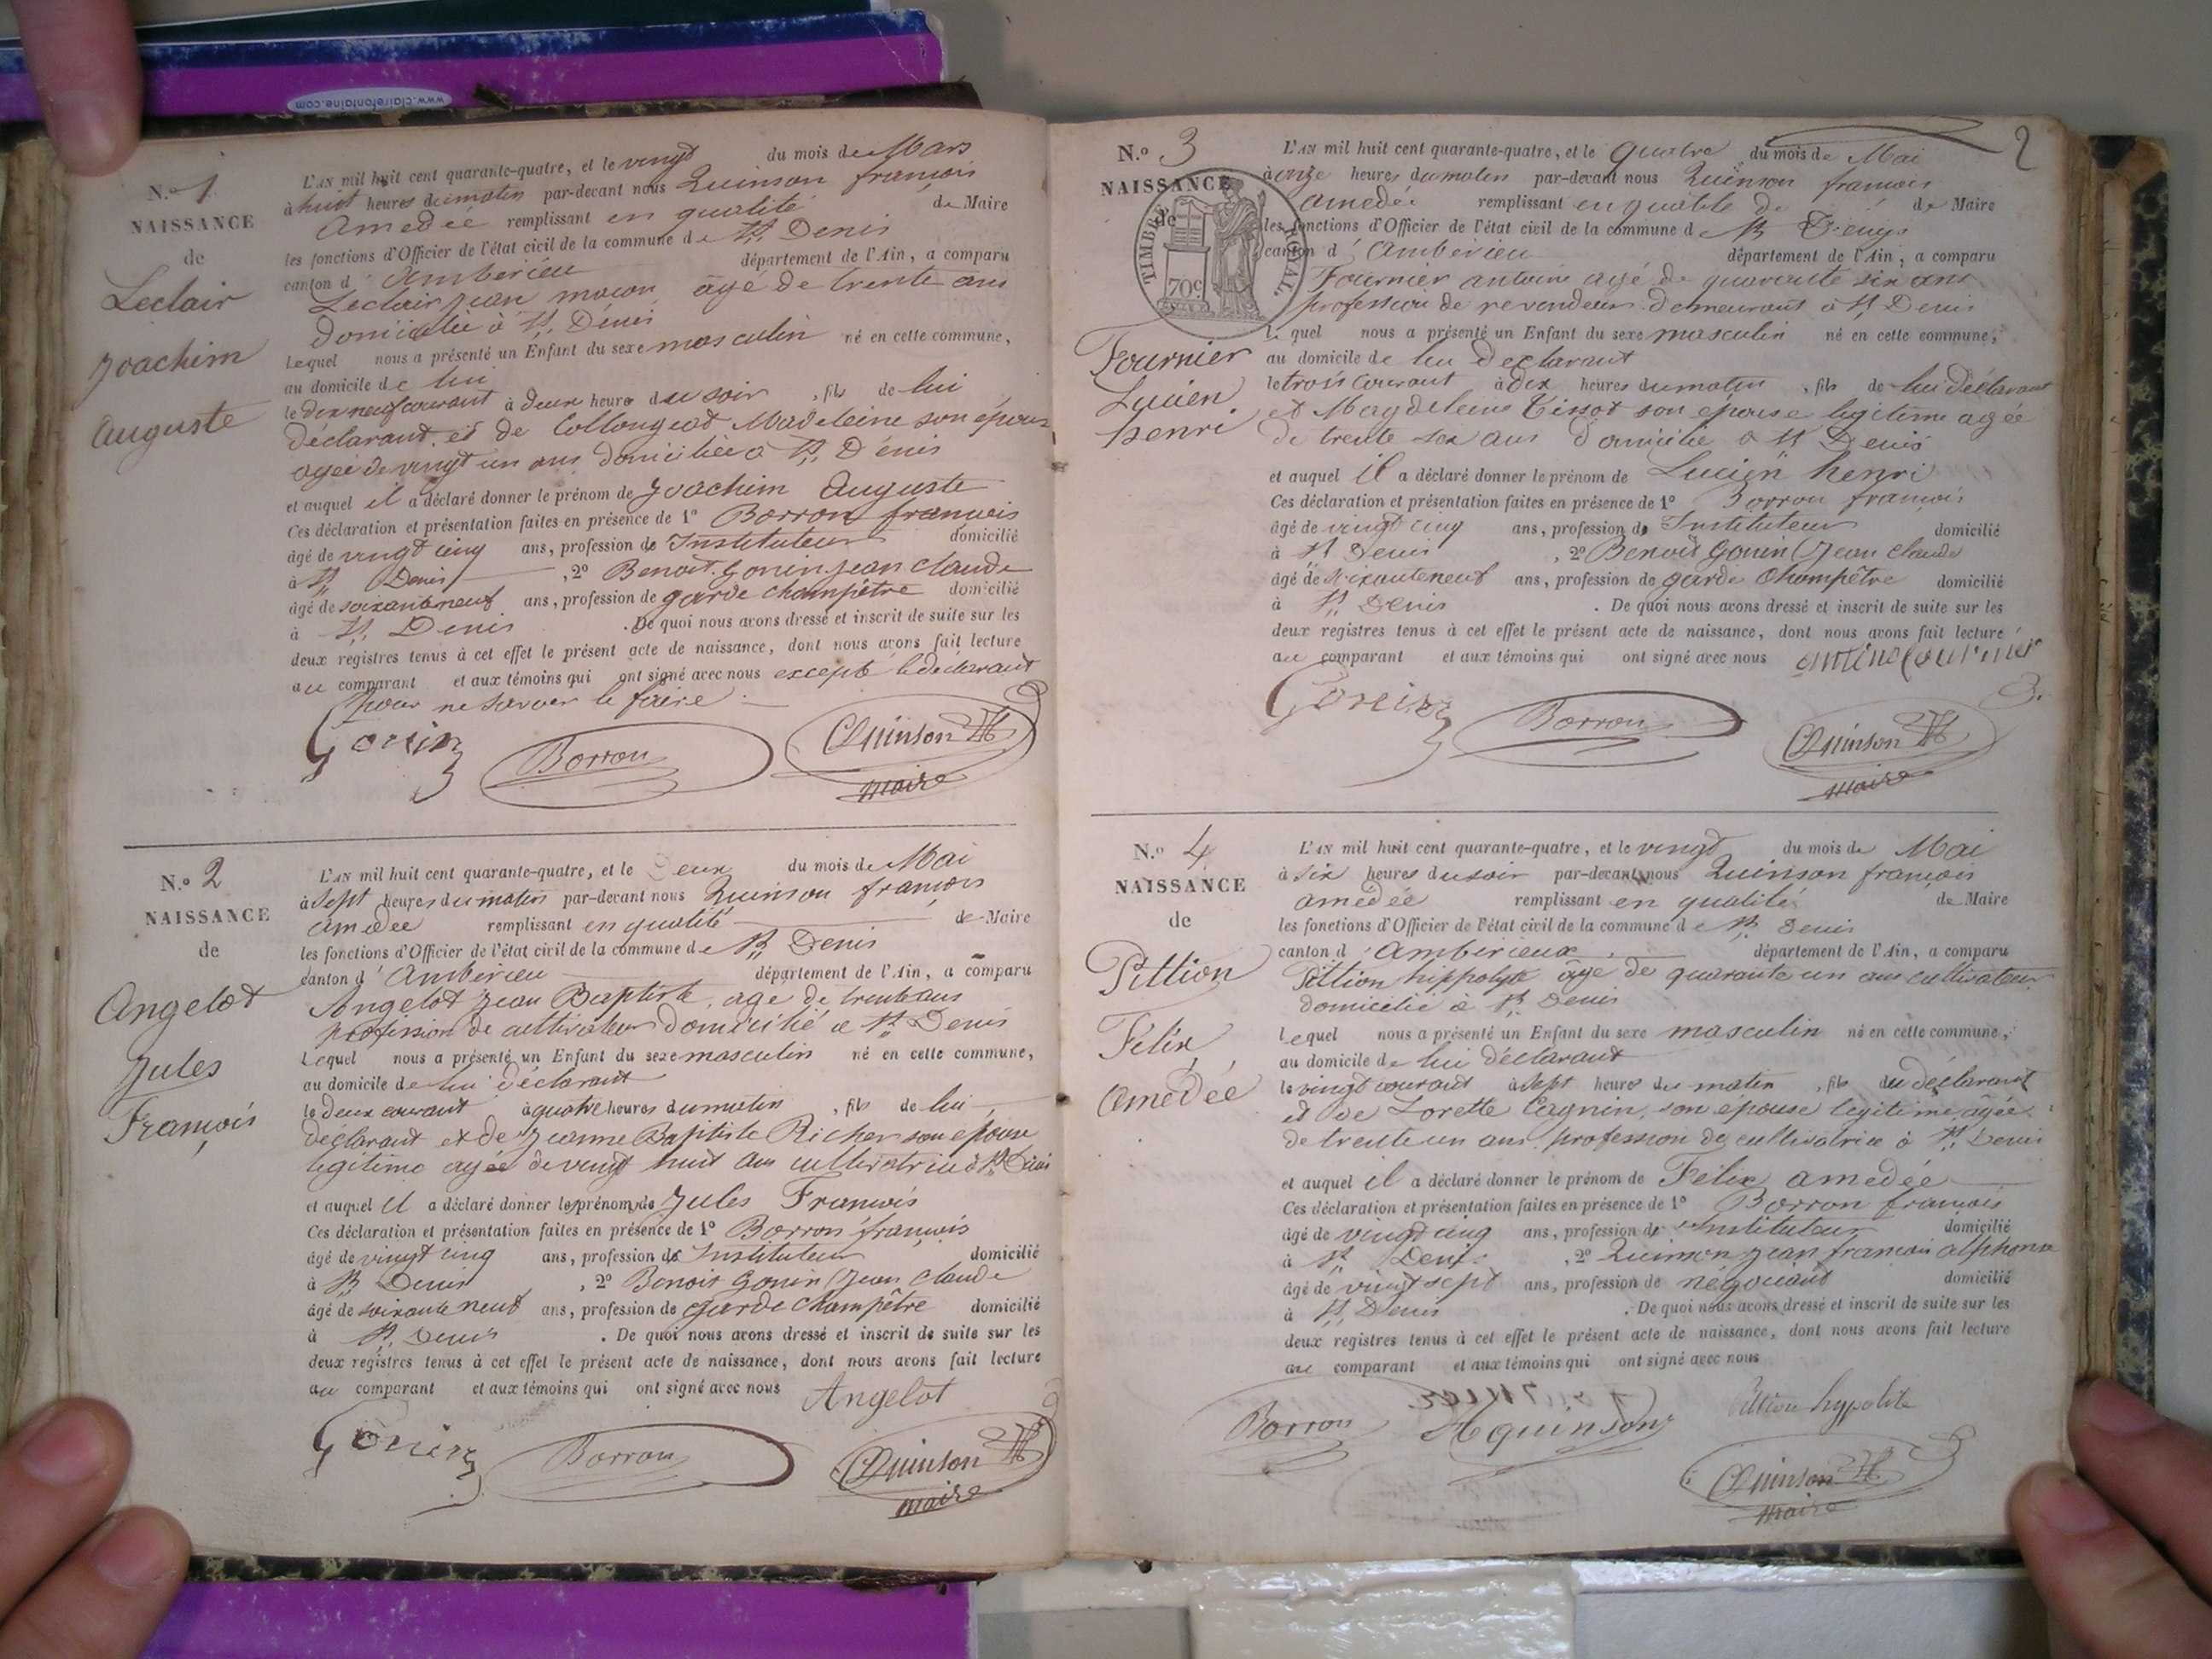 www.clairefontaine.com
N.º 1
NAISSANCE
de
Leclair
Joachim
Auguste
L'AN mil huit cent quarante-quatre, et le vingt du mois de Mars
à huit heures du matin par-devant nous Quinson françois
Amedée remplissant en qualité de Maire
les fonctions d'Officier de l'état civil de la commune de St Denis
canton d'Ambérieu département de l'Ain, a comparu
Leclair Jean maçon âgé de trente ans
domicilié à St Denis
Lequel nous a présenté un Enfant du sexe masculin né en cette commune,
au domicile de lui
le dix neuf courant à deux heures du soir , fils de lui
déclarant et de Collongeat Madeleine son épouse
agée de vingt un ans domiciliée à St Denis
et auquel il a déclaré donner le prénom de Joachim Auguste
Ces déclaration et présentation faites en présence de 1º Borron françois
âgé de vingt cinq ans, profession de Instituteur domicilié
à St Denis , 2º Benoit Gonin Jean Claude
âgé de soixante neuf ans, profession de garde champêtre domicilié
à St Denis . De quoi nous avons dressé et inscrit de suite sur les
deux registres tenus à cet effet le présent acte de naissance, dont nous avons fait lecture
au comparant et aux témoins qui ont signé avec nous excepté le déclarant
pour ne savoir le faire
Gonin Borron Quinson
maire
N.º 2
NAISSANCE
de
Angelot
Jules
François
L'AN mil huit cent quarante-quatre, et le Deux du mois de Mai
à sept heures du matin par-devant nous Quinson françois
amedée remplissant en qualité de Maire
les fonctions d'Officier de l'état civil de la commune de St Denis
canton d'Ambérieu département de l'Ain, a comparu
Angelot Jean Baptiste, age de trente ans
profession de cultivateur domicilié à St Denis
Lequel nous a présenté un Enfant du sexe masculin né en cette commune,
au domicile de lui déclarant
le deux courant à quatre heures du matin , fils de lui
déclarant et de Jeanne Baptiste Richer son épouse
legitime agée de vingt huit ans cultivatrice à St Denis
et auquel il a déclaré donner les prénom de Jules François
Ces déclaration et présentation faites en présence de 1º Borron françois
âgé de vingt cinq ans, profession de Instituteur domicilié
à St Denis , 2º Benoit Gonin Jean Claude
âgé de soixante neuf ans, profession de garde champêtre domicilié
à St Denis . De quoi nous avons dressé et inscrit de suite sur les
deux registres tenus à cet effet le présent acte de naissance, dont nous avons fait lecture
au comparant et aux témoins qui ont signé avec nous Angelot
Gonin Borron Quinson
maire
2
N.º 3
NAISSANCE
de
TIMBRE ROYAL
70c
Fournier
Lucien
henri
L'AN mil huit cent quarante-quatre, et le Quatre du mois de Mai
à onze heures du matin par-devant nous Quinson françois
amedée remplissant en qualité de de Maire
les fonctions d'Officier de l'état civil de la commune d St Denys
canton d'Ambérieu département de l'Ain, a comparu
Fournier antoine agé de quarante six ans
profession de revendeur demeurant à St Denis
Le quel nous a présenté un Enfant du sexe masculin né en cette commune,
au domicile de lui déclarant
le trois courant à dix heures du matin , fils de lui déclarant
et Magdeleine Tissot son épouse legitime agée
de trente six ans domicilié à St Denis
et auquel il a déclaré donner le prénom de Lucien henri
Ces déclaration et présentation faites en présence de 1º Borron françois
âgé de vingt cinq ans, profession de Instituteur domicilié
à St Denis , 2º Benoit Gonin Jean Claude
âgé de soixante neuf ans, profession de garde Champêtre domicilié
à St Denis . De quoi nous avons dressé et inscrit de suite sur les
deux registres tenus à cet effet le présent acte de naissance, dont nous avons fait lecture
au comparant et aux témoins qui ont signé avec nous
Gonin Borron Quinson
maire
N.º 4
NAISSANCE
de
Pittion
Félix
Amédée
L'AN mil huit cent quarante-quatre, et le vingt du mois de Mai
à six heures du soir par-devant nous Quinson françois
amédée remplissant en qualité de Maire
les fonctions d'Officier de l'état civil de la commune de St Denis
canton d'Ambérieux département de l'Ain, a comparu
Pittion hippolyte âgé de quarante un ans cultivateur
domicilié à St Denis
Lequel nous a présenté un Enfant du sexe masculin né en cette commune,
au domicile de lui déclarant
le vingt courant à sept heures du matin , fils du déclarant
et de Lorette Cagnin, son épouse legitime âgée
de trente un ans profession de cultivatrice à St Denis
et auquel il a déclaré donner le prénom de Félix amedée
Ces déclaration et présentation faites en présence de 1º Borron françois
âgé de vingt cinq ans, profession de Instituteur domicilié
à St Denis , 2º Quinson Jean françois alphonse
âgé de vingt sept ans, profession de négociant domicilié
à St Denis . De quoi nous avons dressé et inscrit de suite sur les
deux registres tenus à cet effet le présent acte de naissance, dont nous avons fait lecture
au comparant et aux témoins qui ont signé avec nous
Borron A quinson Pittion hypolite
Quinson
maire